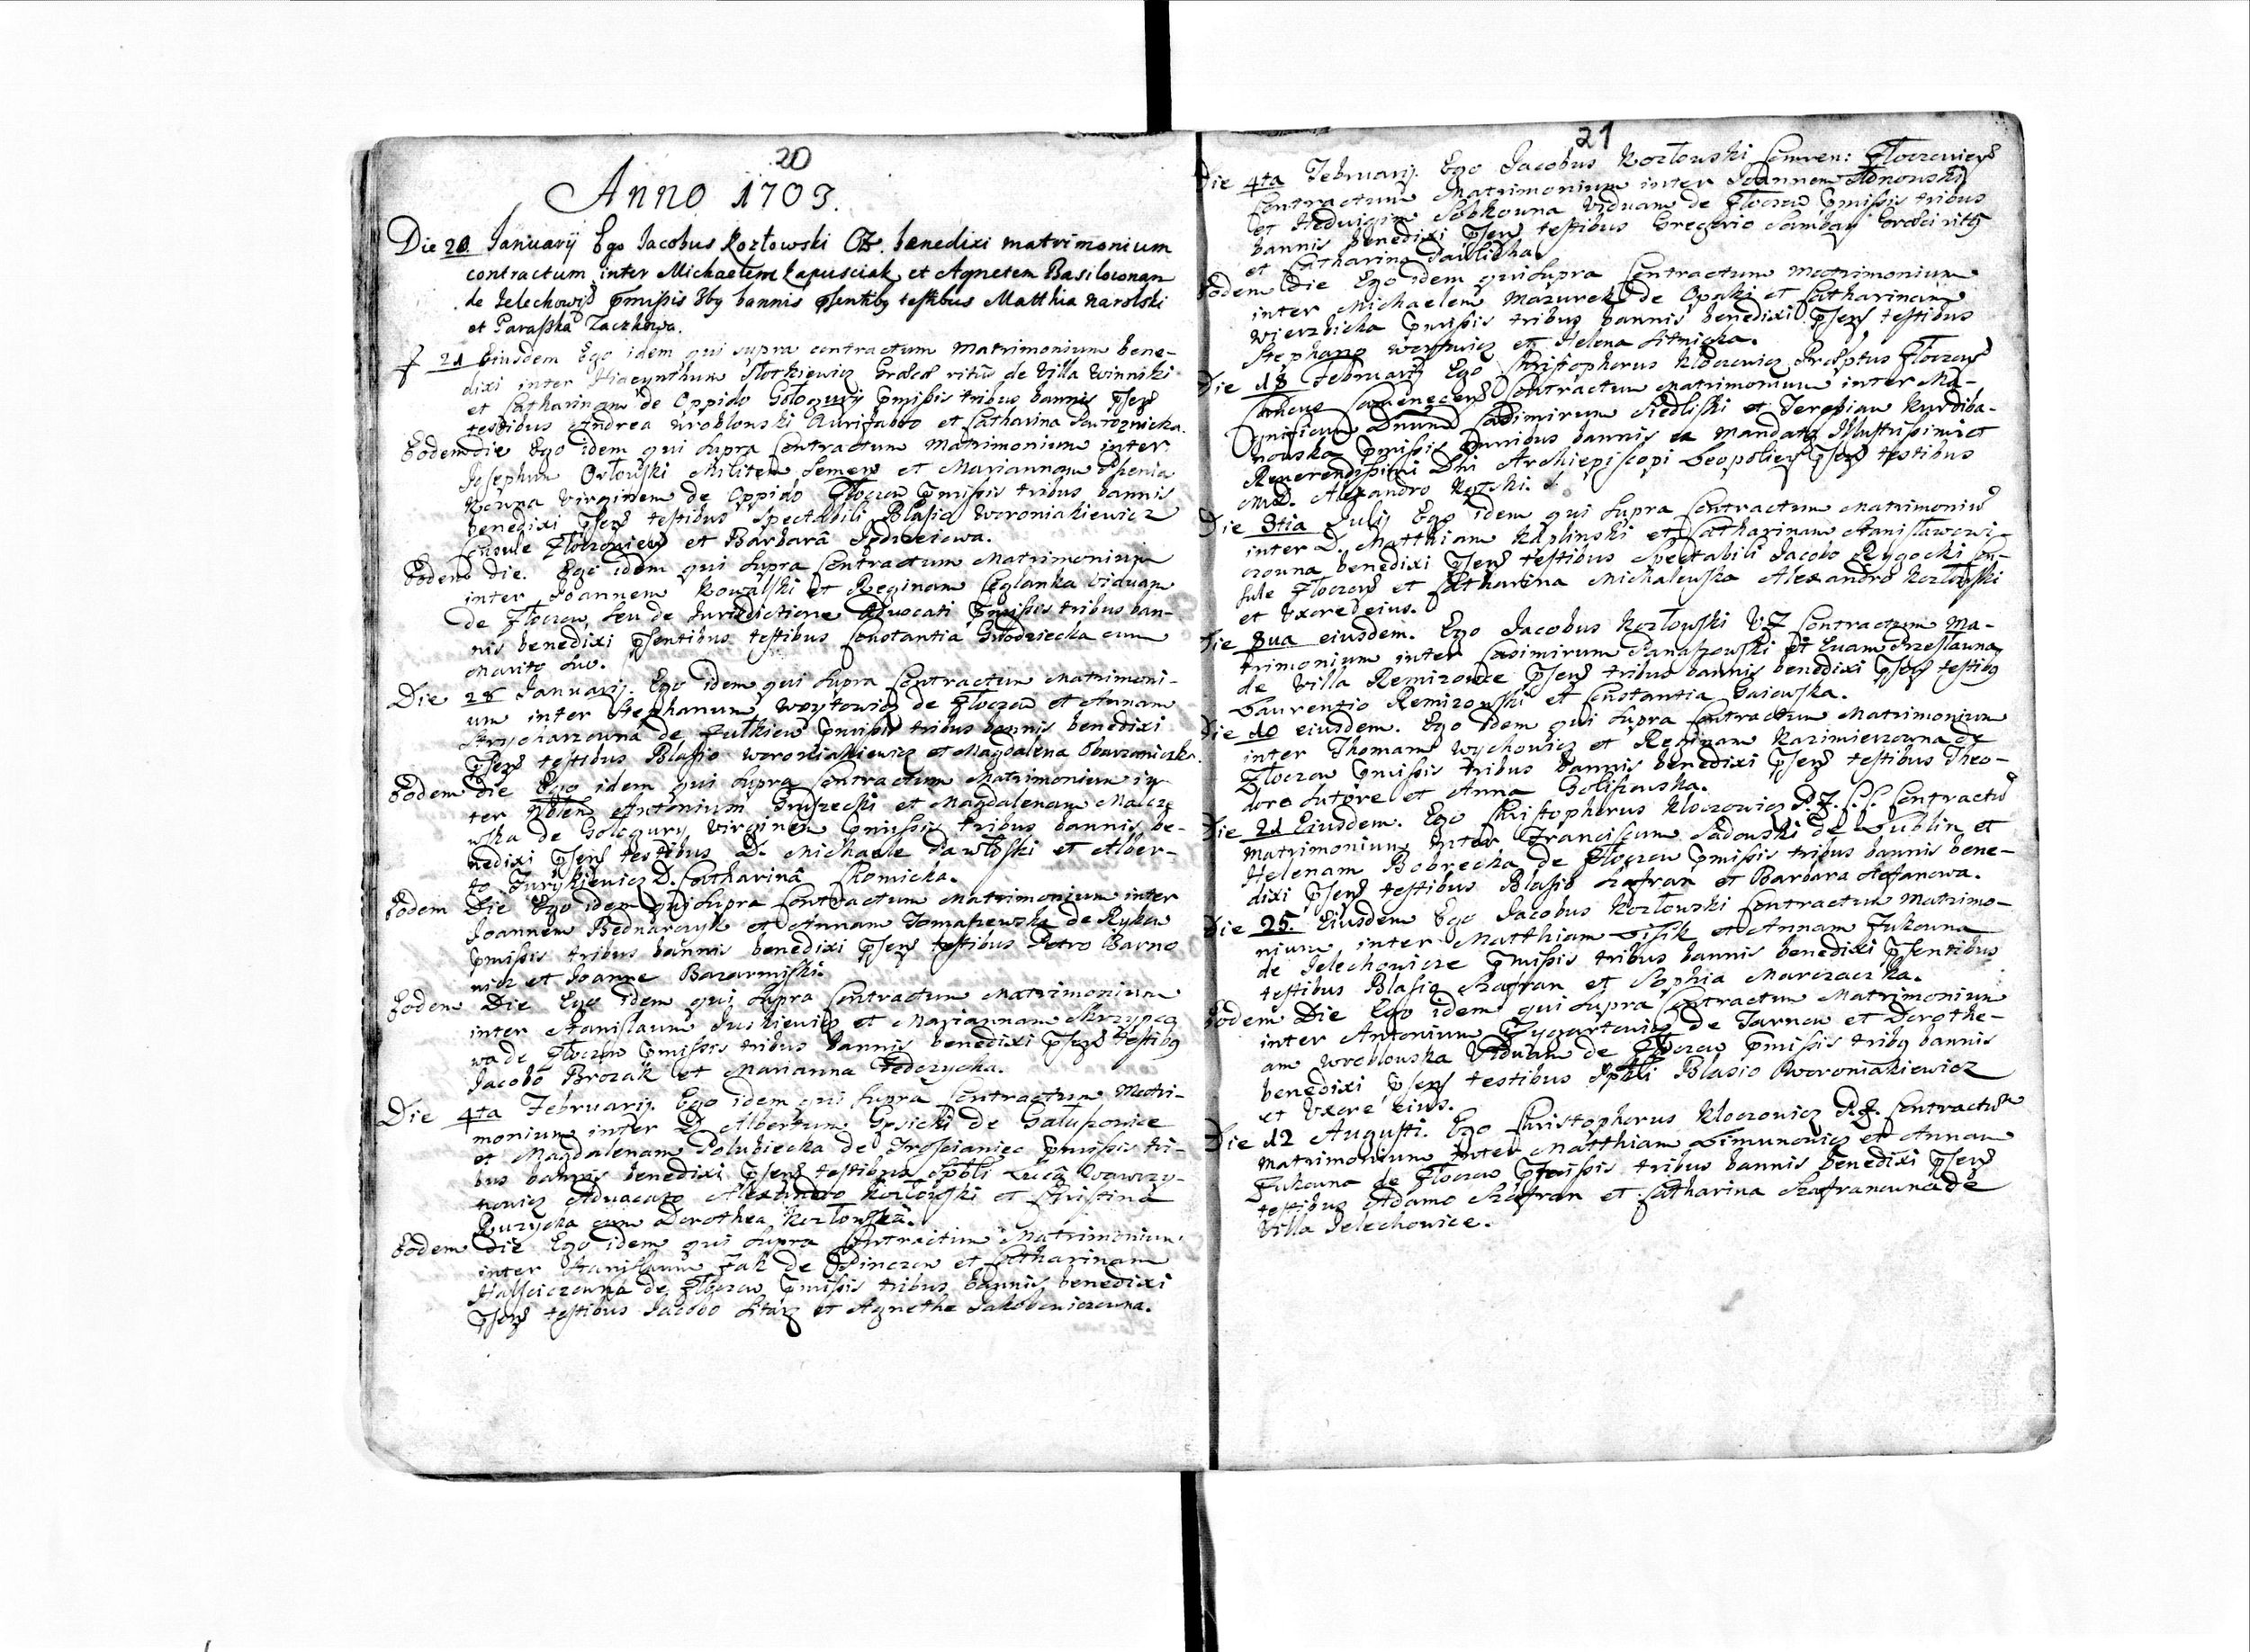 20
Anno 1703.
Die 20 Januarij Ego Jacobus Kozłowski CZ. benedixi matrimonium
contractum inter Michaelem Łapusciak et Agneten Basilownan
de Jelechowijs pmissis 3bg bannis psentibg testibus Matthia Narolski
et Paraszka Zaczkowa.
21 Eiusdem Ego idem qui supra contractum Matrimonium bene-
dixi inter Hiacynthum Slotkiewicz Græci ritus de Villa Winniki
et Catharinam de Oppido Gołogury pmissis tribus bannis psens
testibus Andrea Wroblowski Aurifabro et Catharina
Eodem die Ego idem qui supra Contractum Matrimonium inter
Josephum Orłowski Militem et Mariannam
Virginem de Oppido Złoczow pmissis tribus bannis
benedixi psens testibus Spectabili Blasio Woroniakiewicz
Consule Złoczoviens et Barbara Jędrzeiowa.
Eodem die. Ego idem qui supra Contractum Matrimonium
inter Joannem Kowalski et Reginam Ceglanka Viduam
de Złoczow, seu de Jurisdictione Advocati pmissis tribus ban-
nis benedixi psentibus testibus Constantia Gwodziecka cum
Marito suo.
Die 28 Januarij. Ego idem qui supra Contractum Matrimoni-
um inter Stephanum Woytowicz de Złoczow et Annam
Strycharzowna de Zułkiew pmissis tribus bannis benedixi
psens testibus Blasio Woroniakiewicz et Magdalena Obarzaniczka.
Eodem die Ego idem qui supra Contractum Matrimonium in-
ter Nblem Antonium Gruszecki et Magdalenam Malcze
wska de Gologury Virginem pmissis tribus bannis be-
nedixi psens testibus D. Michaele Pawłoski et Alber-
to Jurykiewicz D. Catharina Skomicka.
Eodem Die Ego idem qui supra Contractum Matrimonium inter
Joannem Bednarczyk et Annam Tomaszewska de Rykow
pmissis tribus bannis benedixi psens testibus Petro Barno
wicz et Joanne Bazarmiski.
Eodem Die Ego idem qui supra Contractum Matrimonium
inter Stanislaum Juskiewicz et Mariannam Skrzypco
wa de Złoczow pmissis tribus bannis benedixi psens testibg
Jacobo Brozak et Marianna Fedczycha.
Die 4ta Februarij. Ego idem qui supra Contractum Matri-
monium inter D Albertum Gssicki de Gałuszowice
et Magdalenam Polubiecka de Troscianiec pmissis tri-
bus bannis benedixi psens testibus Spbli Luca Wawrzy-
nowicz Advocato Alexandro Kozłowski et Christina
Ruzycka cum Dorothea Kozłowska.
Eodem die Ego idem qui supra Contractum Matrimonium
inter Stanislaum Zak de Pinczow et Catharinam
Halsciczowna de Złoczow pmissis tribus bannis benedixi
psens testibus Jacobo Starz et Agnethe Jakobowiczowna.
21
Die 4ta Februarij. Ego Jacobus Kozłowski Comven: Złoczoviens
Contractum Matrimonium inter Joannem Adnowski
et Hedvigim Sobkowna Viduam de Złoczow pmissis tribus
bannis benedixi psens testibus Gregorio Sambay Græci ritg
et Catharina Pawlicha
Eodem Die Ego idem qui supra Contractum Matrimonium
inter Michaelem Mazurek de Opaki et Catharinam
Wierzbicka pmissis tribus bannis benedixi psens testibus
Stephano et Helena Sitnicka.
Die 18 Februarij Ego Christophorus Kloczowicz Præptus Złoczoviens
Contractum Matrimonium inter Ma-
gnificum Dnum Casimirum Siedliski et Teresiam Kurdiba-
nowska pmissis omnibus bannis ex mandato Illustrissimi et
Reverendissimi Dni Archiepiscopi Leopoliens psens testibus
M. D. Alexandro
Die 3tia Julij Ego idem qui supra Contractum Matrimoniu
inter D. Matthiam Kaplinski et Catharinam Stanisławowi-
czowna benedixi psens testibus Spectabili Jacobo Rygocki Con-
sule Złoczovs et Catharina Michalewska Alexandro Kozłowski
et Uxore eius.
Die 8ua eiusdem. Ego Jacobus Kozłowski VZ Contractum Ma-
trimonium inter Casimirum Panaszowski et Evam Przesławna
de Villa Remizowce psens tribus bannis benedixi psens testibg
Laurentio Remizowski et Constantia Gaiowska.
Die 10 eiusdem. Ego idem qui supra Contractum Matrimonium
inter Thomam Wychowicz et Reginam Kazimierzowna de
Złoczow pmissis tribus bannis benedixi psens testibus Theo-
doro Sutore et Anna Golisowska.
Die 21 Eiusdem. Ego Christophorus Kloczowicz P.Z. C.C. Contractu
Matrimonium inter Franciscum Sadowski de Lublin et
Helenam Bobrecka de Złoczow pmissis tribus bannis bene-
dixi psens testibus Blasio Szafran et Barbara Stefanowa.
Die 25. Eiusdem Ego Jacobus Kozłowski Contractum Matrimo-
nium inter Matthiam Lisik et Annam Zukowna
de Jelechowicze pmissis tribus bannis benedixi psentibus
testibus Blasio Szafran et Sophia Marczaczka.
Eodem Die Ego idem qui supra Contractum Matrimonium
inter Antonium Zygartowicz de Tarnow et Dorothe-
am Wroblowska Viduam de Złoczow pmissis tribg bannis
benedixi psens testibus Spbli Blasio Woroniakiewicz
et Uxore eius.
Die 12 Augusti. Ego Christophorus Kloczowicz P.Z. Contractum
Matrimonium inter Matthiam Simunowicz et Annam
Zukowna de Złoczow pmissis tribus bannis benedixi psens
testibus Adamo Szafran et Catharina Szafranowna de
Villa Jelechowice.